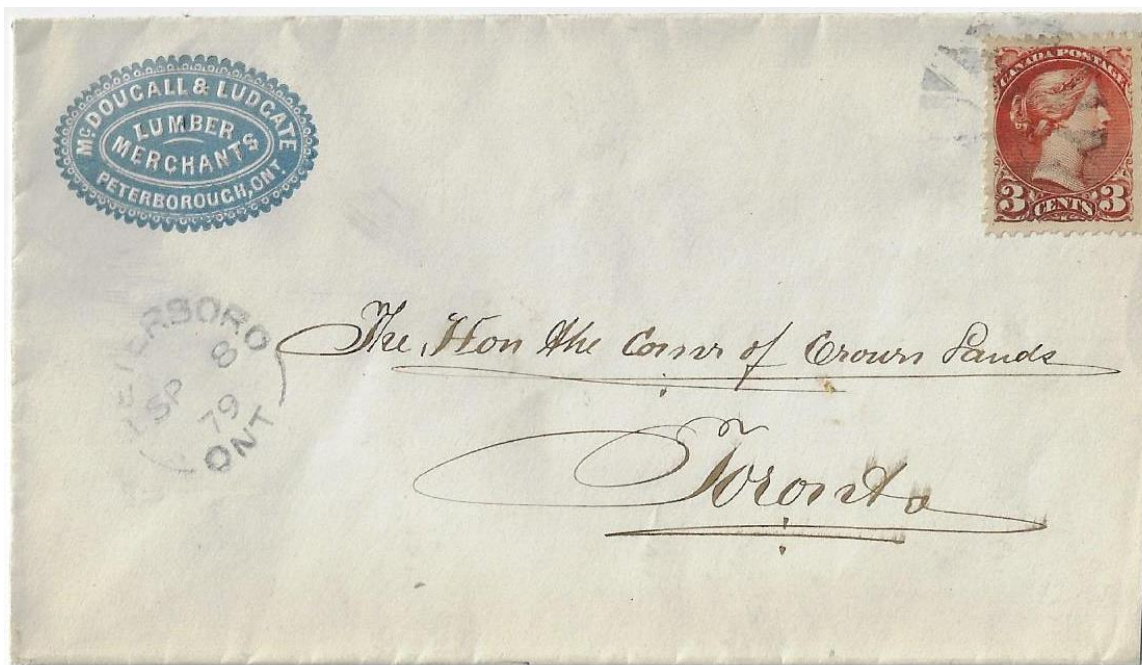 McDOUGALL & LUDGATE
LUMBER
MERCHANTS
PETERBOROUGH, ONT.
CANADA POSTAGE
3 CENTS 3
TERBORO
SP 8
79
ONT
The, Hon the Comr of Crown Lands
Toronto